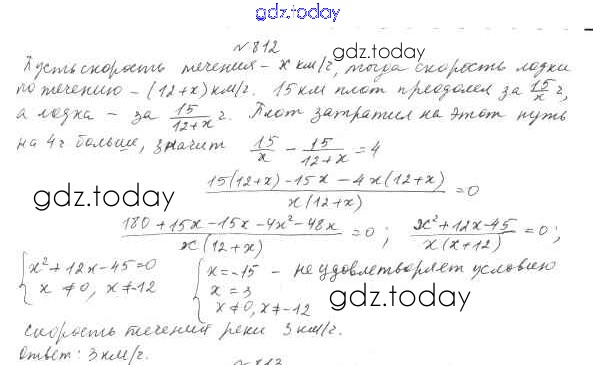 gdz.today
№812
gdz.today
Пусть скорость течения – x км/ч, тогда скорость лодки
по течению – (12+x) км/ч. 15 км плот преодолел за 15/x ч,
а лодка – за 15/12+x ч. Плот затратил на этот путь
на 4 ч больше, значит 15/x – 15/12+x = 4
gdz.today
15(12+x)-15x-4x(12+x) / x(12+x) = 0
180+15x-15x-4x²-48x / x(12+x) = 0; x²+12x-45 / x(x+12) = 0;
{ x²+12x-45=0 { x=-15 – не удовлетворяет условию
x≠0, x≠-12 x=3
x≠0, x≠-12
gdz.today
скорость течения реки 3 км/ч.
Ответ: 3 км/ч.
№813